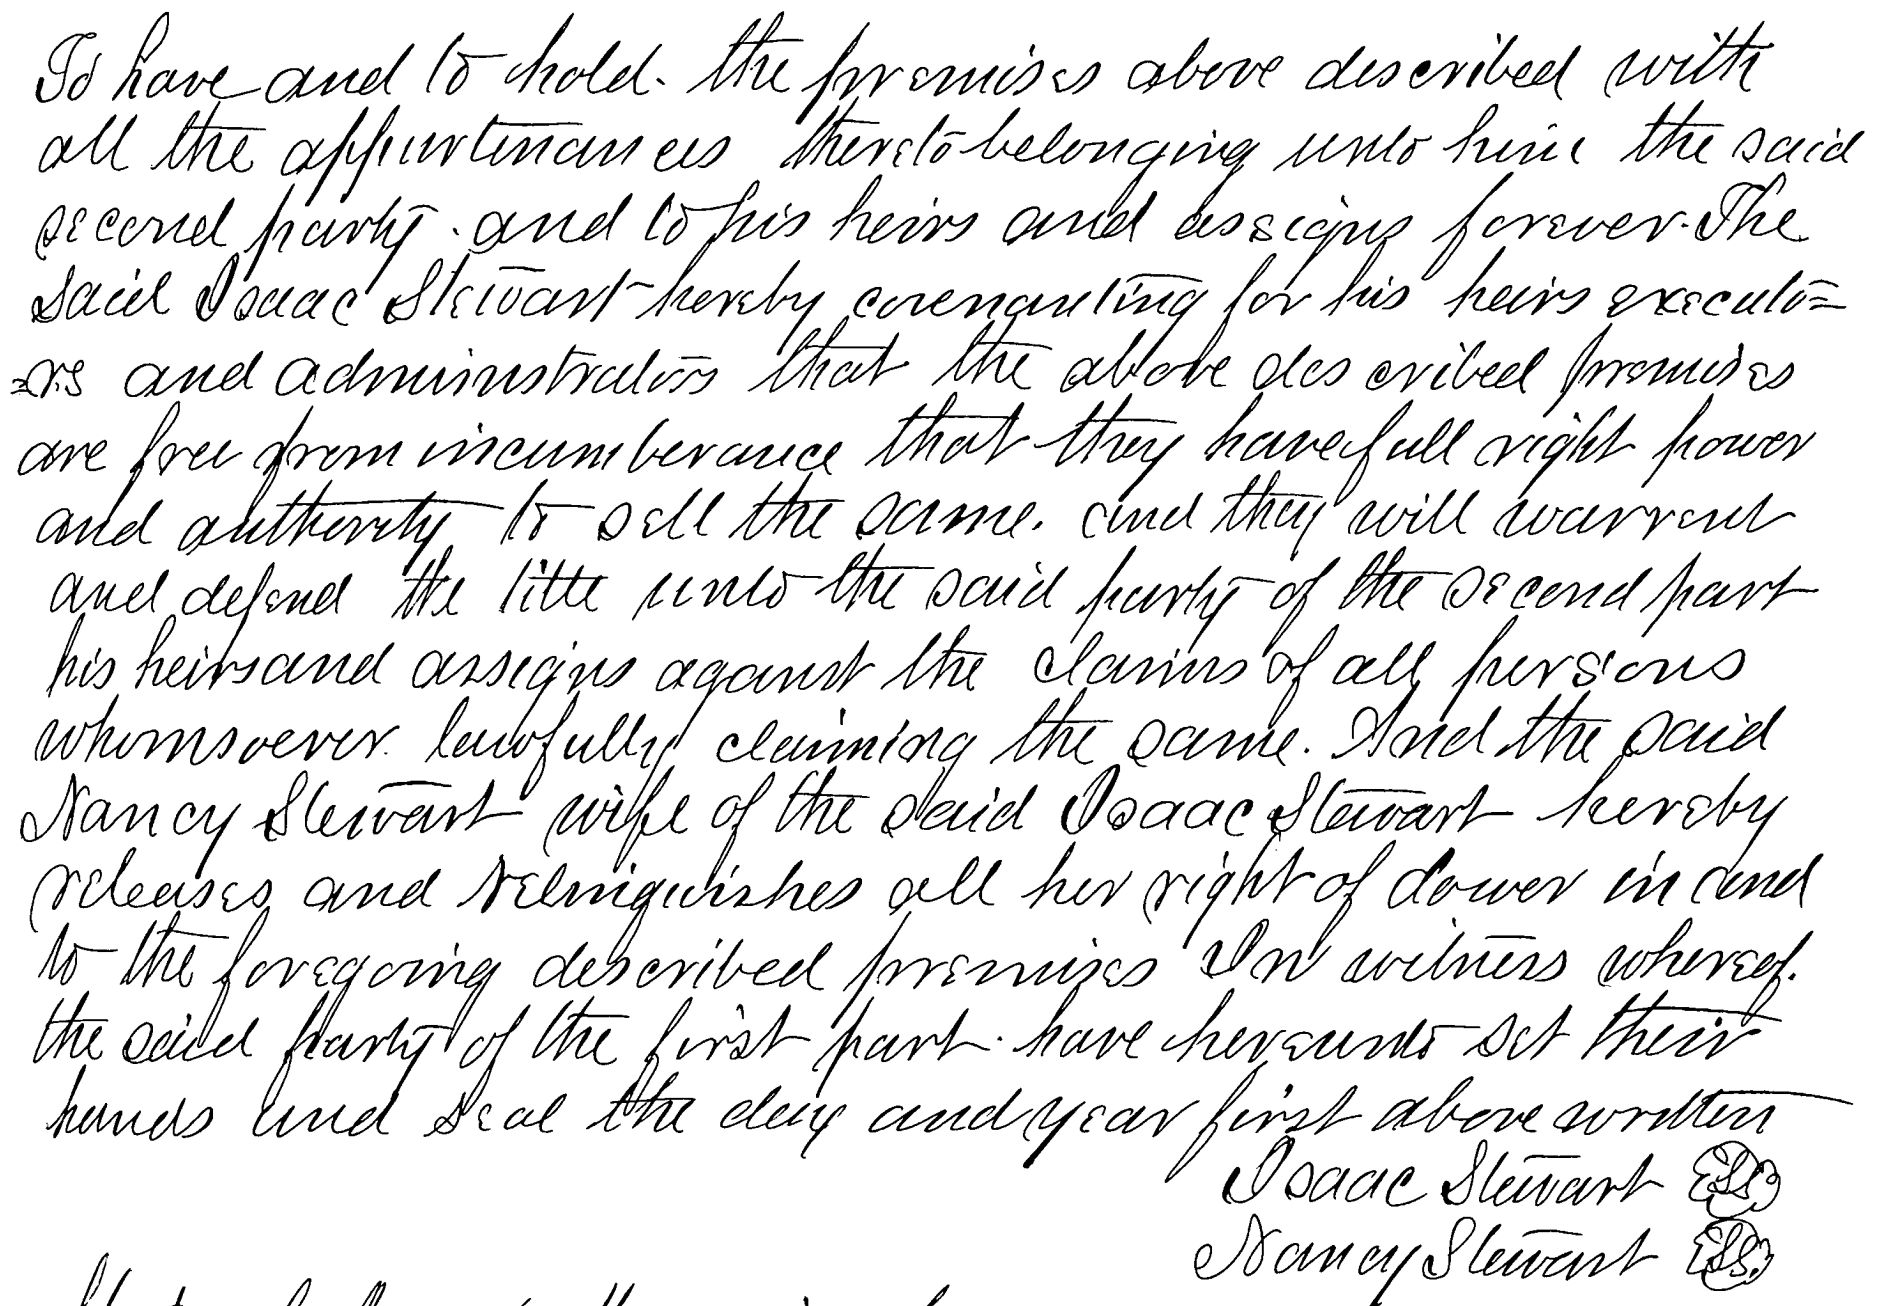 To have and to hold. the premises above described with
all the appurtinances thereto belonging unto him the said
second party. and to his heirs and assigns forever. The
said Isaac Stewart hereby covenanting for his heirs executo=
=rs and administrators that the above described premises
are free from incumberance that they have full right power
and authority to sell the same. and they will warrent
and defend the title unto the said party of the second part
his heirs and assigns against the claims of all persons
whomsoever. lawfully claiming the same. And the said
Nancy Stewart wife of the said Isaac Stewart hereby
releases and relinquishes all her right of dower in and
to the foregoing described premises In witness whereof.
the said party of the first part. have hereunto set their
hands and seal the day and year first above written
Isaac Stewart
Nancy Stewart